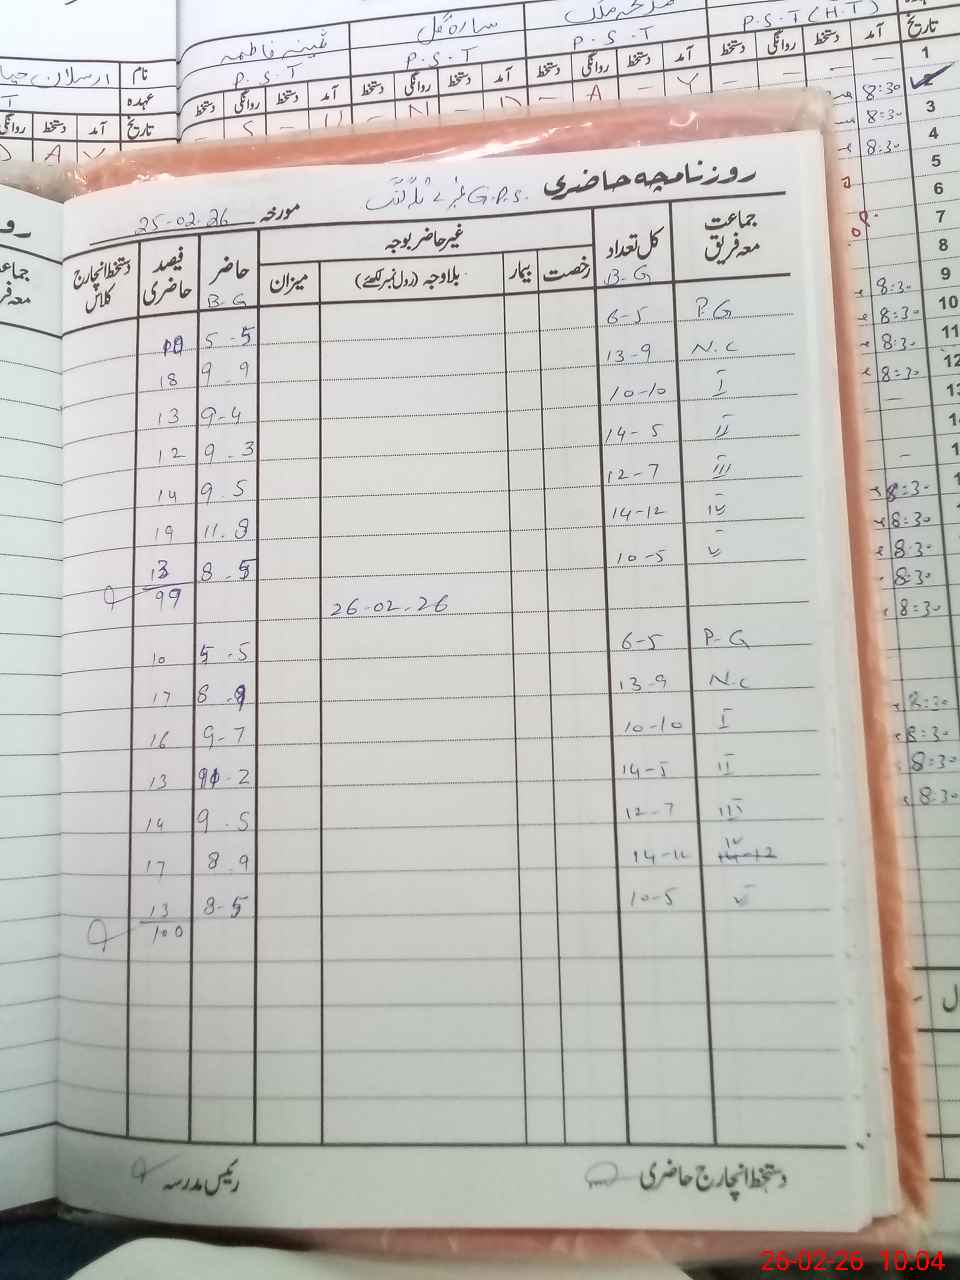 P.S.T (H.T)
سارہ گل
ثمینہ فاطمہ
P.S.T
P.S.T
P.S.T
تاریخ آمد دستخط روانگی دستخط آمد دستخط روانگی دستخط آمد دستخط روانگی دستخط آمد دستخط روانگی دستخط
نام ارسلان
عہدہ
تاریخ آمد دستخط روانگی
Y - A - D - N - U - S -
Y A D
روزنامچہ حاضری G.P.S.
مورخہ 25-02-26
جماعت معہ فریق کل تعداد غیر حاضر بوجہ حاضر فیصد حاضری دستخط انچارج کلاس
رخصت بیمار بلاوجہ (رول نمبر لکھئے) میزان
B-G B-G
P.G 6-5 5-5 10
N.C 13-9 9-9 18
I 10-10 9-4 13
II 14-5 9-3 12
III 12-7 9-5 14
IV 14-12 11-8 19
V 10-5 8-5 13
99
26-02-26
P-G 6-5 5-5 10
N.C 13-9 8-9 17
I 10-10 9-7 16
II 14-5 -2 13
III 12-7 9-5 14
IV 14-12 8-9 17
V 10-5 8-5 13
100
دستخط انچارج حاضری
رئیس مدرسہ
1
8:30
3 8:30
4 8:30
5
6
7
8
9 8:30
10 8:30
11 8:30
12 8:30
8:30
8:30
8:30
8:30
8:30
8:30
8:30
8:30
8:30
26-02-26 10:04